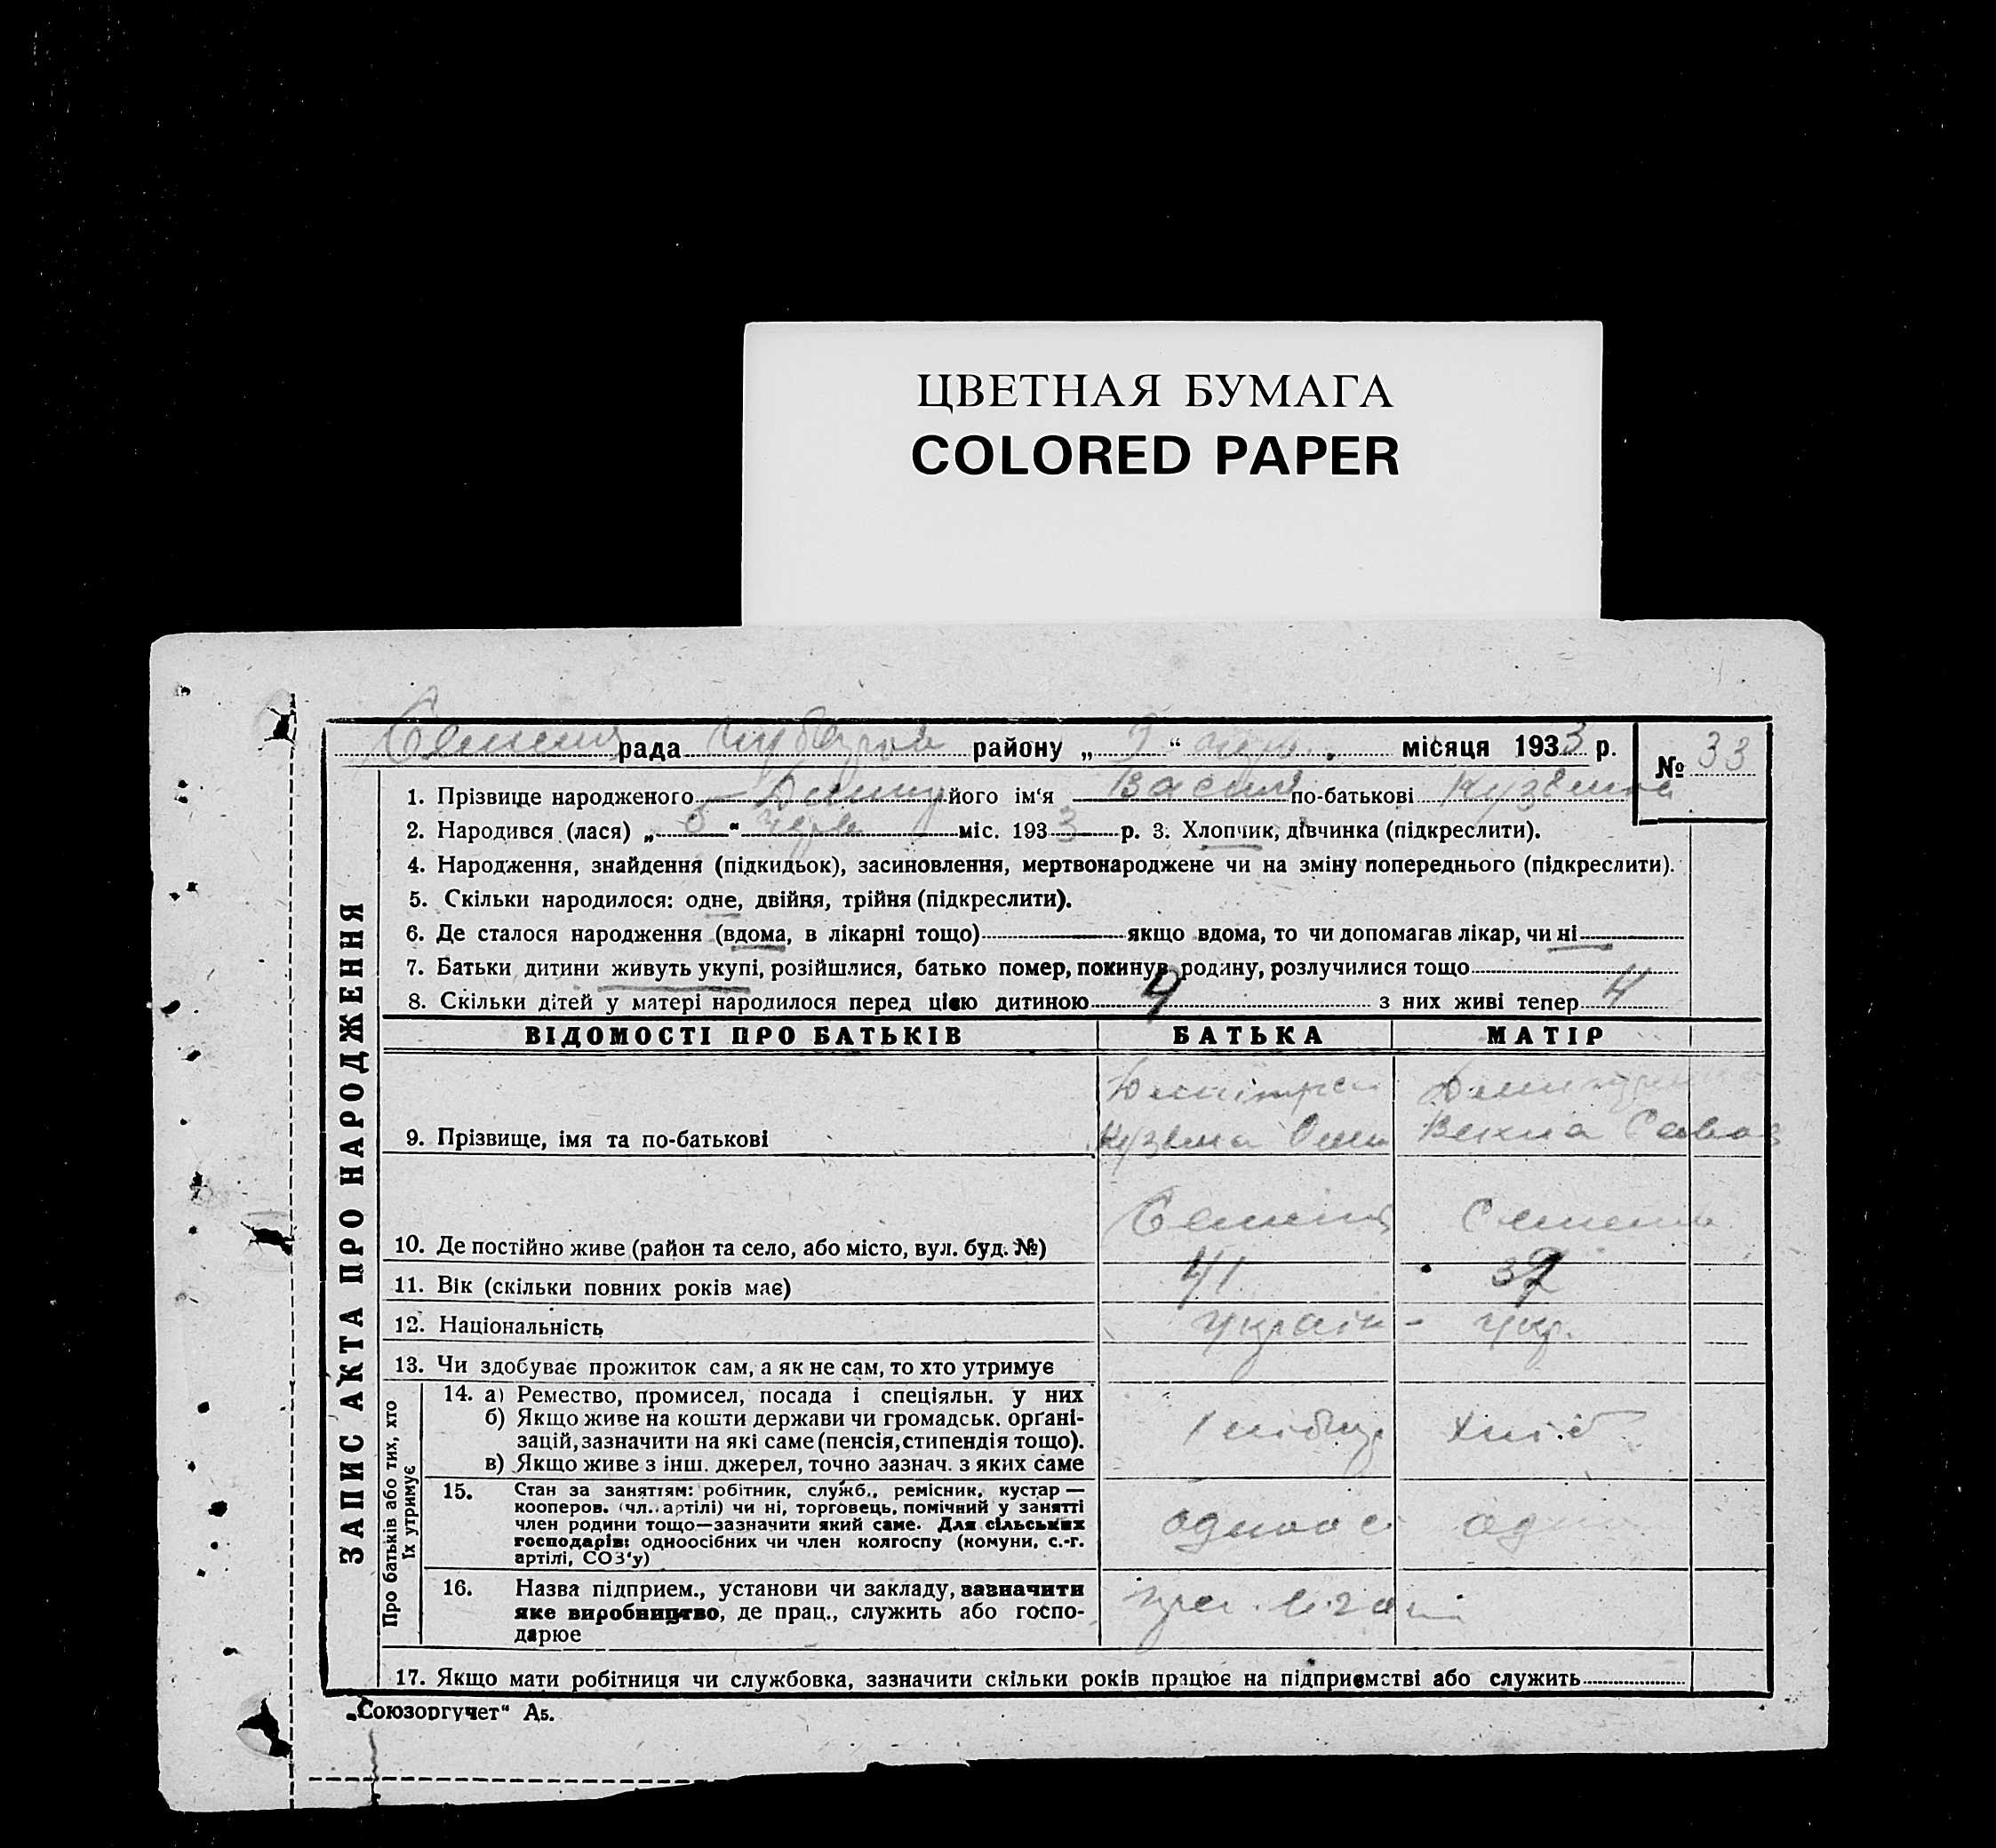 ЦВЕТНАЯ БУМАГА
COLORED PAPER
рада району „ “ місяця 1933 р.
№ 33
1. Прізвище народженого його ім‘я Васил по-батькові
2. Народився (лася) „ 5 “ черв міс. 1933 р. 3. Хлопчик, дівчинка (підкреслити).
4. Народження, знайдення (підкидьок), засиновлення, мертвонароджене чи на зміну попереднього (підкреслити).
5. Скільки народилося: одне, двійня, трійня (підкреслити).
6. Де сталося народження (вдома, в лікарні тощо) якщо вдома, то чи допомагав лікар, чи ні
7. Батьки дитини живуть укупі, розійшлися, батько помер, покинув родину, розлучилися тощо
8. Скільки дітей у матері народилося перед цією дитиною 4 з них живі тепер 4
ЗАПИС АКТА ПРО НАРОДЖЕННЯ
ВІДОМОСТІ ПРО БАТЬКІВ БАТЬКА МАТІР
9. Прізвище, імя та по-батькові Кузьма
10. Де постійно живе (район та село, або місто, вул. буд. №)
11. Вік (скільки повних років має) 41
12. Національність Україн - Укр.
13. Чи здобуває прожиток сам, а як не сам, то хто утримує
Про батьків або тих, хто
їх утримує
14. а) Ремество, промисел, посада і спеціяльн. у них
б) Якщо живе на кошти держави чи громадськ. орґані-
зацій, зазначити на які саме (пенсія, стипендія тощо).
в) Якщо живе з інш. джерел, точно зазнач. з яких саме
хліб
15. Стан за заняттям: робітник, служб., ремісник, кустар —
кооперов. (чл. артілі) чи ні, торговець, помічний у занятті
член родини тощо—зазначити який саме. Для сільських
господарів: одноосібних чи член колгоспу (комуни, с.-г.
артілі, СОЗ‘у)
одноос
16. Назва підприєм., установи чи закладу, зазначити
яке виробництво, де прац., служить або госпо-
дарює
17. Якщо мати робітниця чи службовка, зазначити скільки років працює на підприємстві або служить
„Союзоргучет“ А5.